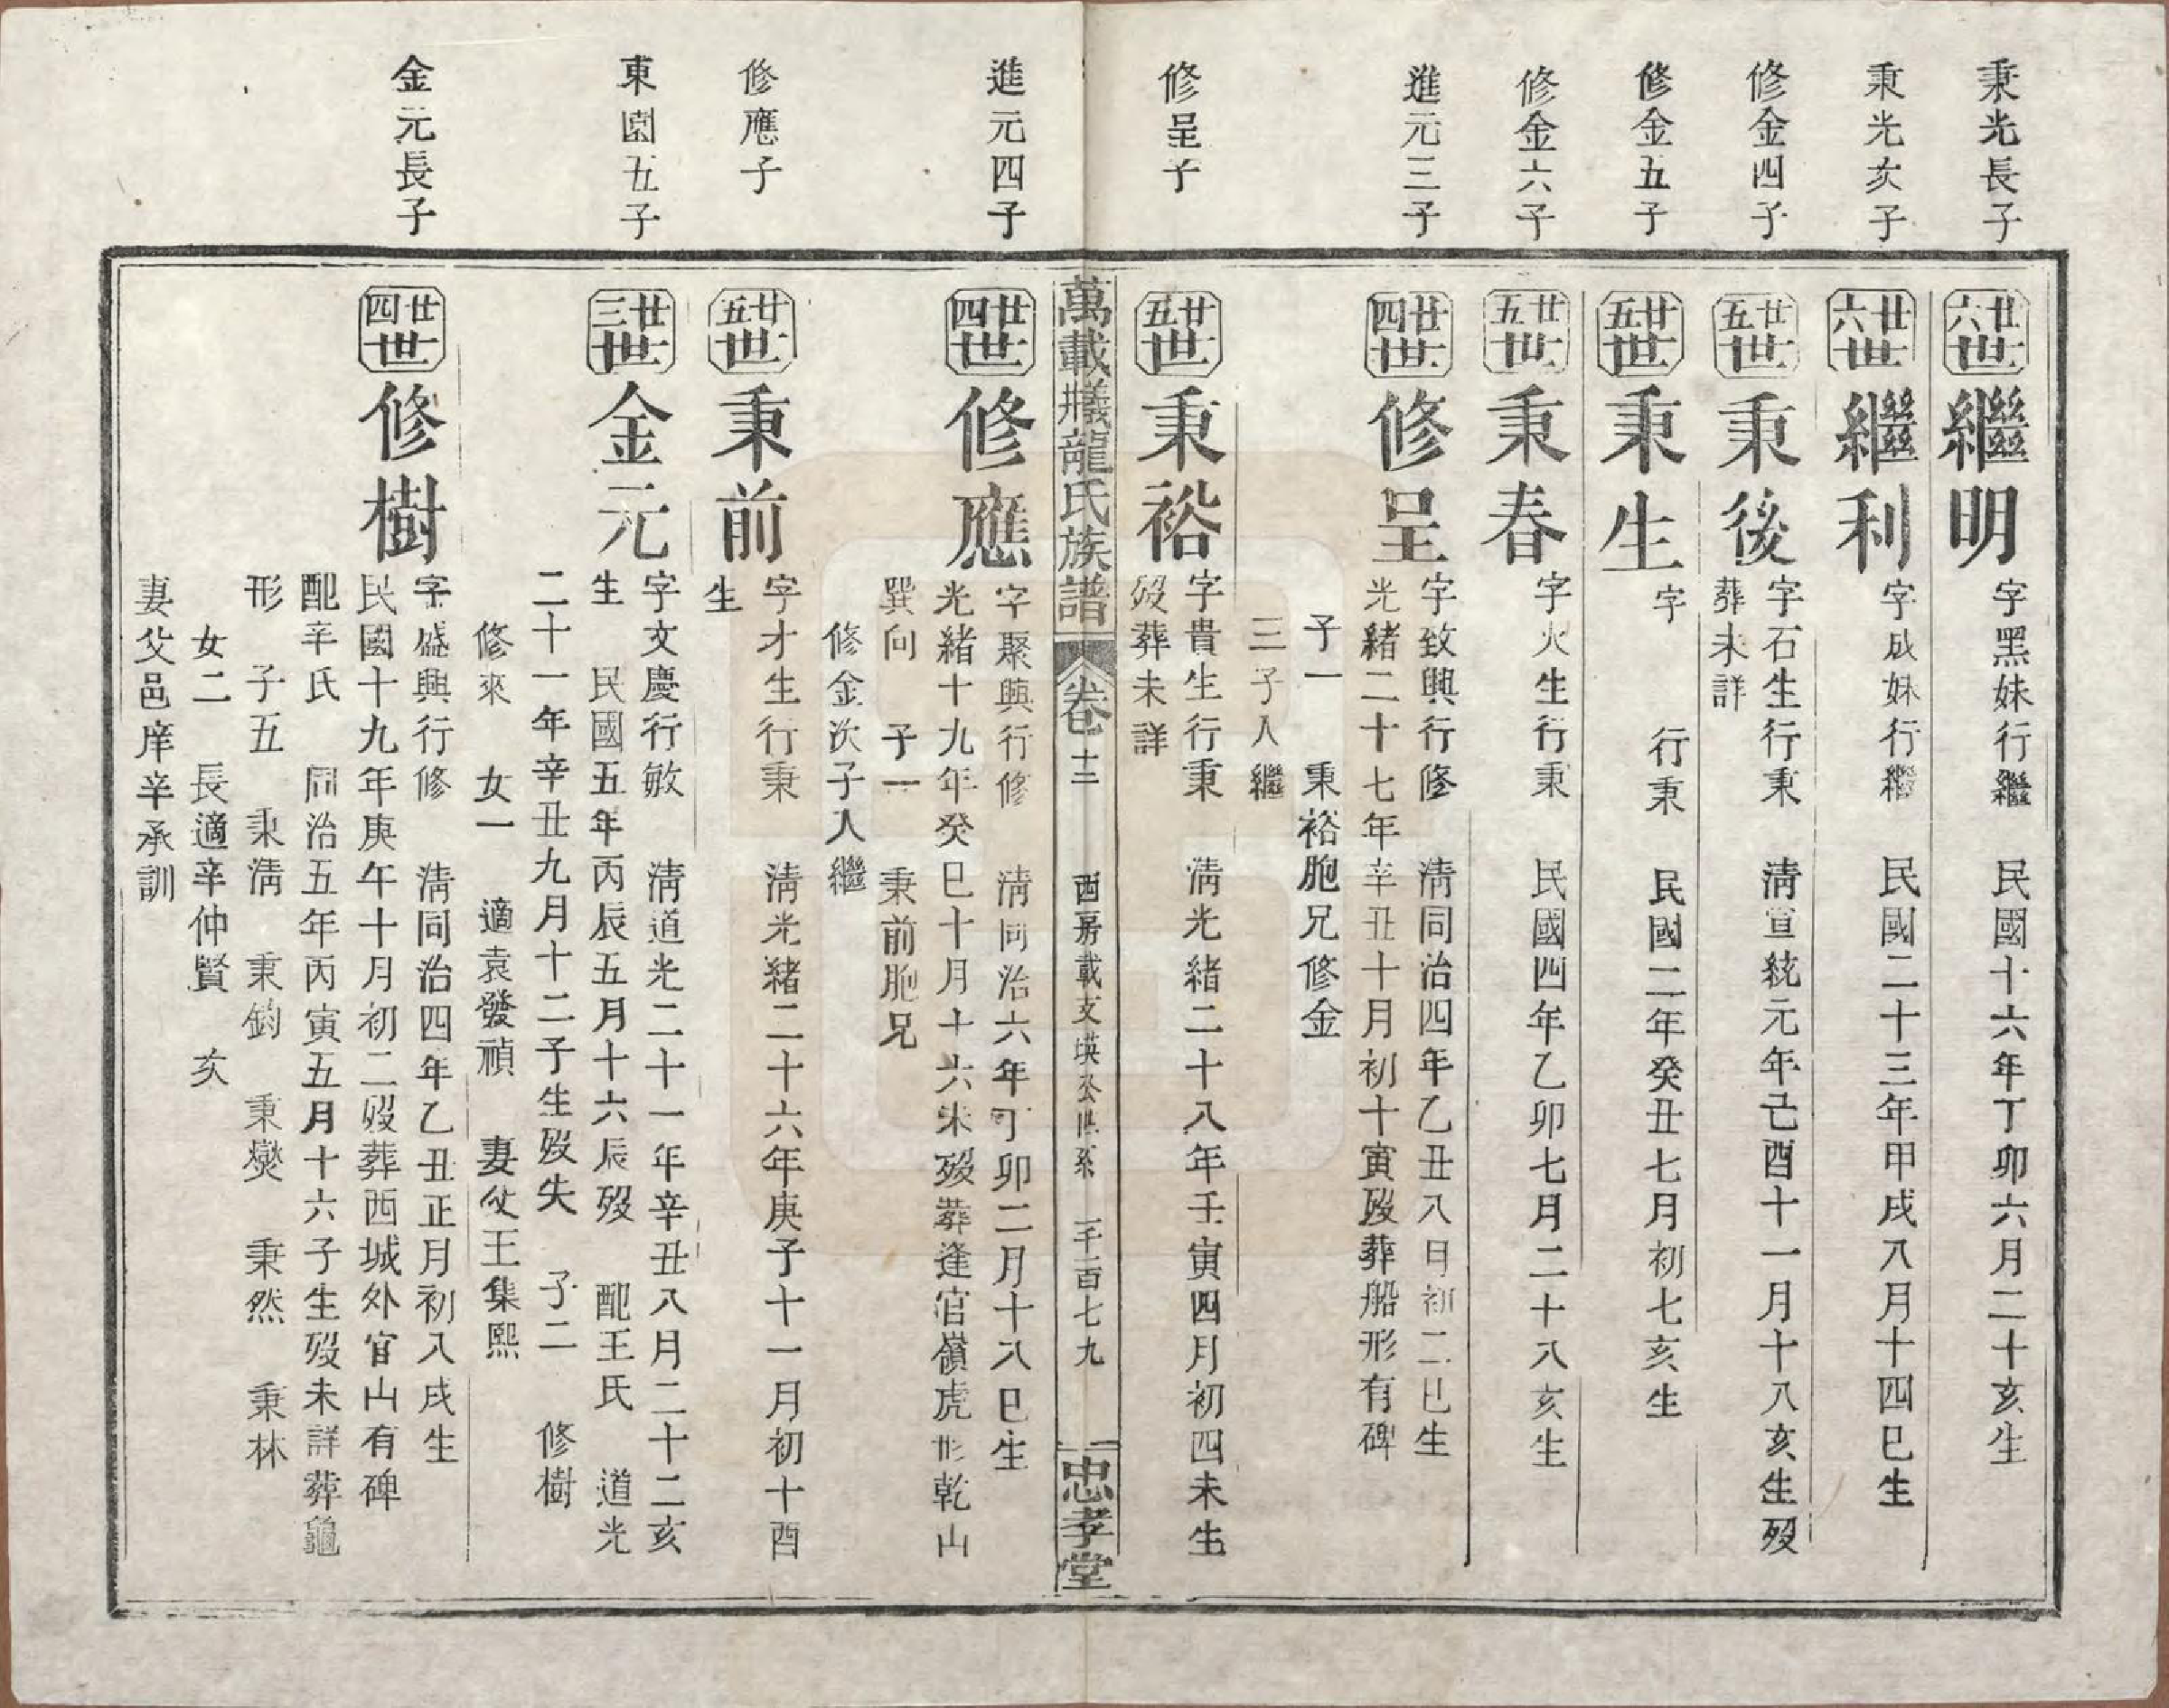 秉光長子
廿六世
繼明
字黑妹行繼 民國十六年丁卯六月二十亥生
秉光次子
廿六世
繼利
字成妹行繼 民國二十三年甲戌八月十四巳生
修金四子
廿五世
秉後
字石生行秉 清宣統元年己酉十一月十八亥生歿
葬未詳
修金五子
廿五世
秉生
字 行秉 民國二年癸丑七月初七亥生
修金六子
廿五世
秉春
字火生行秉 民國四年乙卯七月二十八亥生
進元三子
廿四世
修呈
字致興行修 清同治四年乙丑八月初二巳生
光緒二十七年辛丑十月初十寅歿葬船形有碑
子一 秉裕胞兄修金
三子入繼
修呈子
廿五世
秉裕
字貴生行秉 清光緒二十八年壬寅四月初四未生
歿葬未詳
萬載義龍氏族譜 卷十二 西房載支瑛公世系 一千二百七九 忠孝堂
進元四子
廿四世
修應
字聚興行修 清同治六年丁卯二月十八巳生
光緒十九年癸巳十月十六未歿葬逢官嶺虎形乾山
巽向 子一 秉前胞兄
修金次子入繼
修應子
廿五世
秉前
字才生行秉 清光緒二十六年庚子十一月初十酉
生
東園五子
廿三世
金元
字文慶行敏 清道光二十一年辛丑八月二十二亥
生 民國五年丙辰五月十六辰歿 配王氏 道光
二十一年辛丑九月十二子生歿失 子二 修樹
修來 女一 適袁發禎 妻父王集熙
金元長子
廿四世
修樹
字盛興行修 清同治四年乙丑正月初八戌生
民國十九年庚午十月初二歿葬西城外官山有碑
配辛氏 同治五年丙寅五月十六子生歿未詳葬龜
形 子五 秉清 秉鈞 秉爕 秉然 秉林
女二 長適辛仲賢 次
妻父邑庠辛承訓